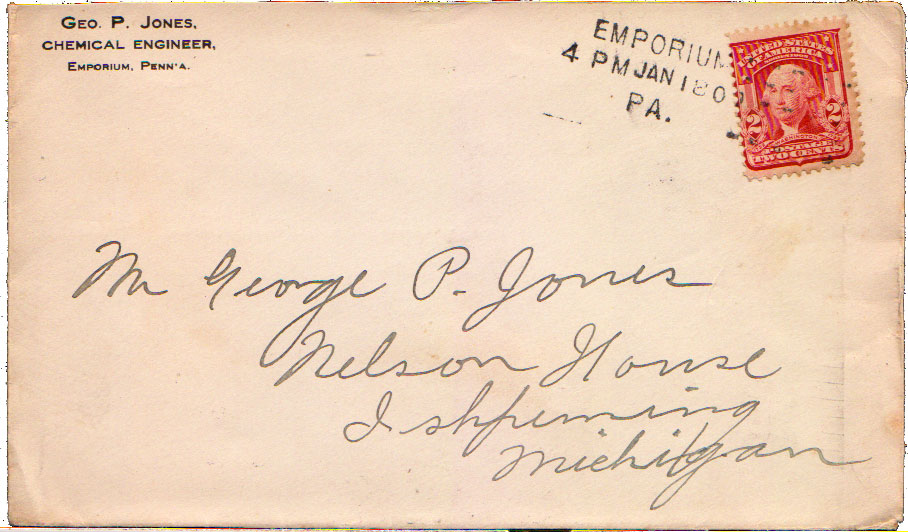 GEO. P. JONES,
CHEMICAL ENGINEER,
EMPORIUM, PENN'A.
EMPORIUM
4 PM JAN 18 0
PA.
UNITED STATES
OF AMERICA
2 2
WASHINGTON
POSTAGE
TWO CENTS
Mr George P. Jones
Nelson House
Ishpeming
Michigan